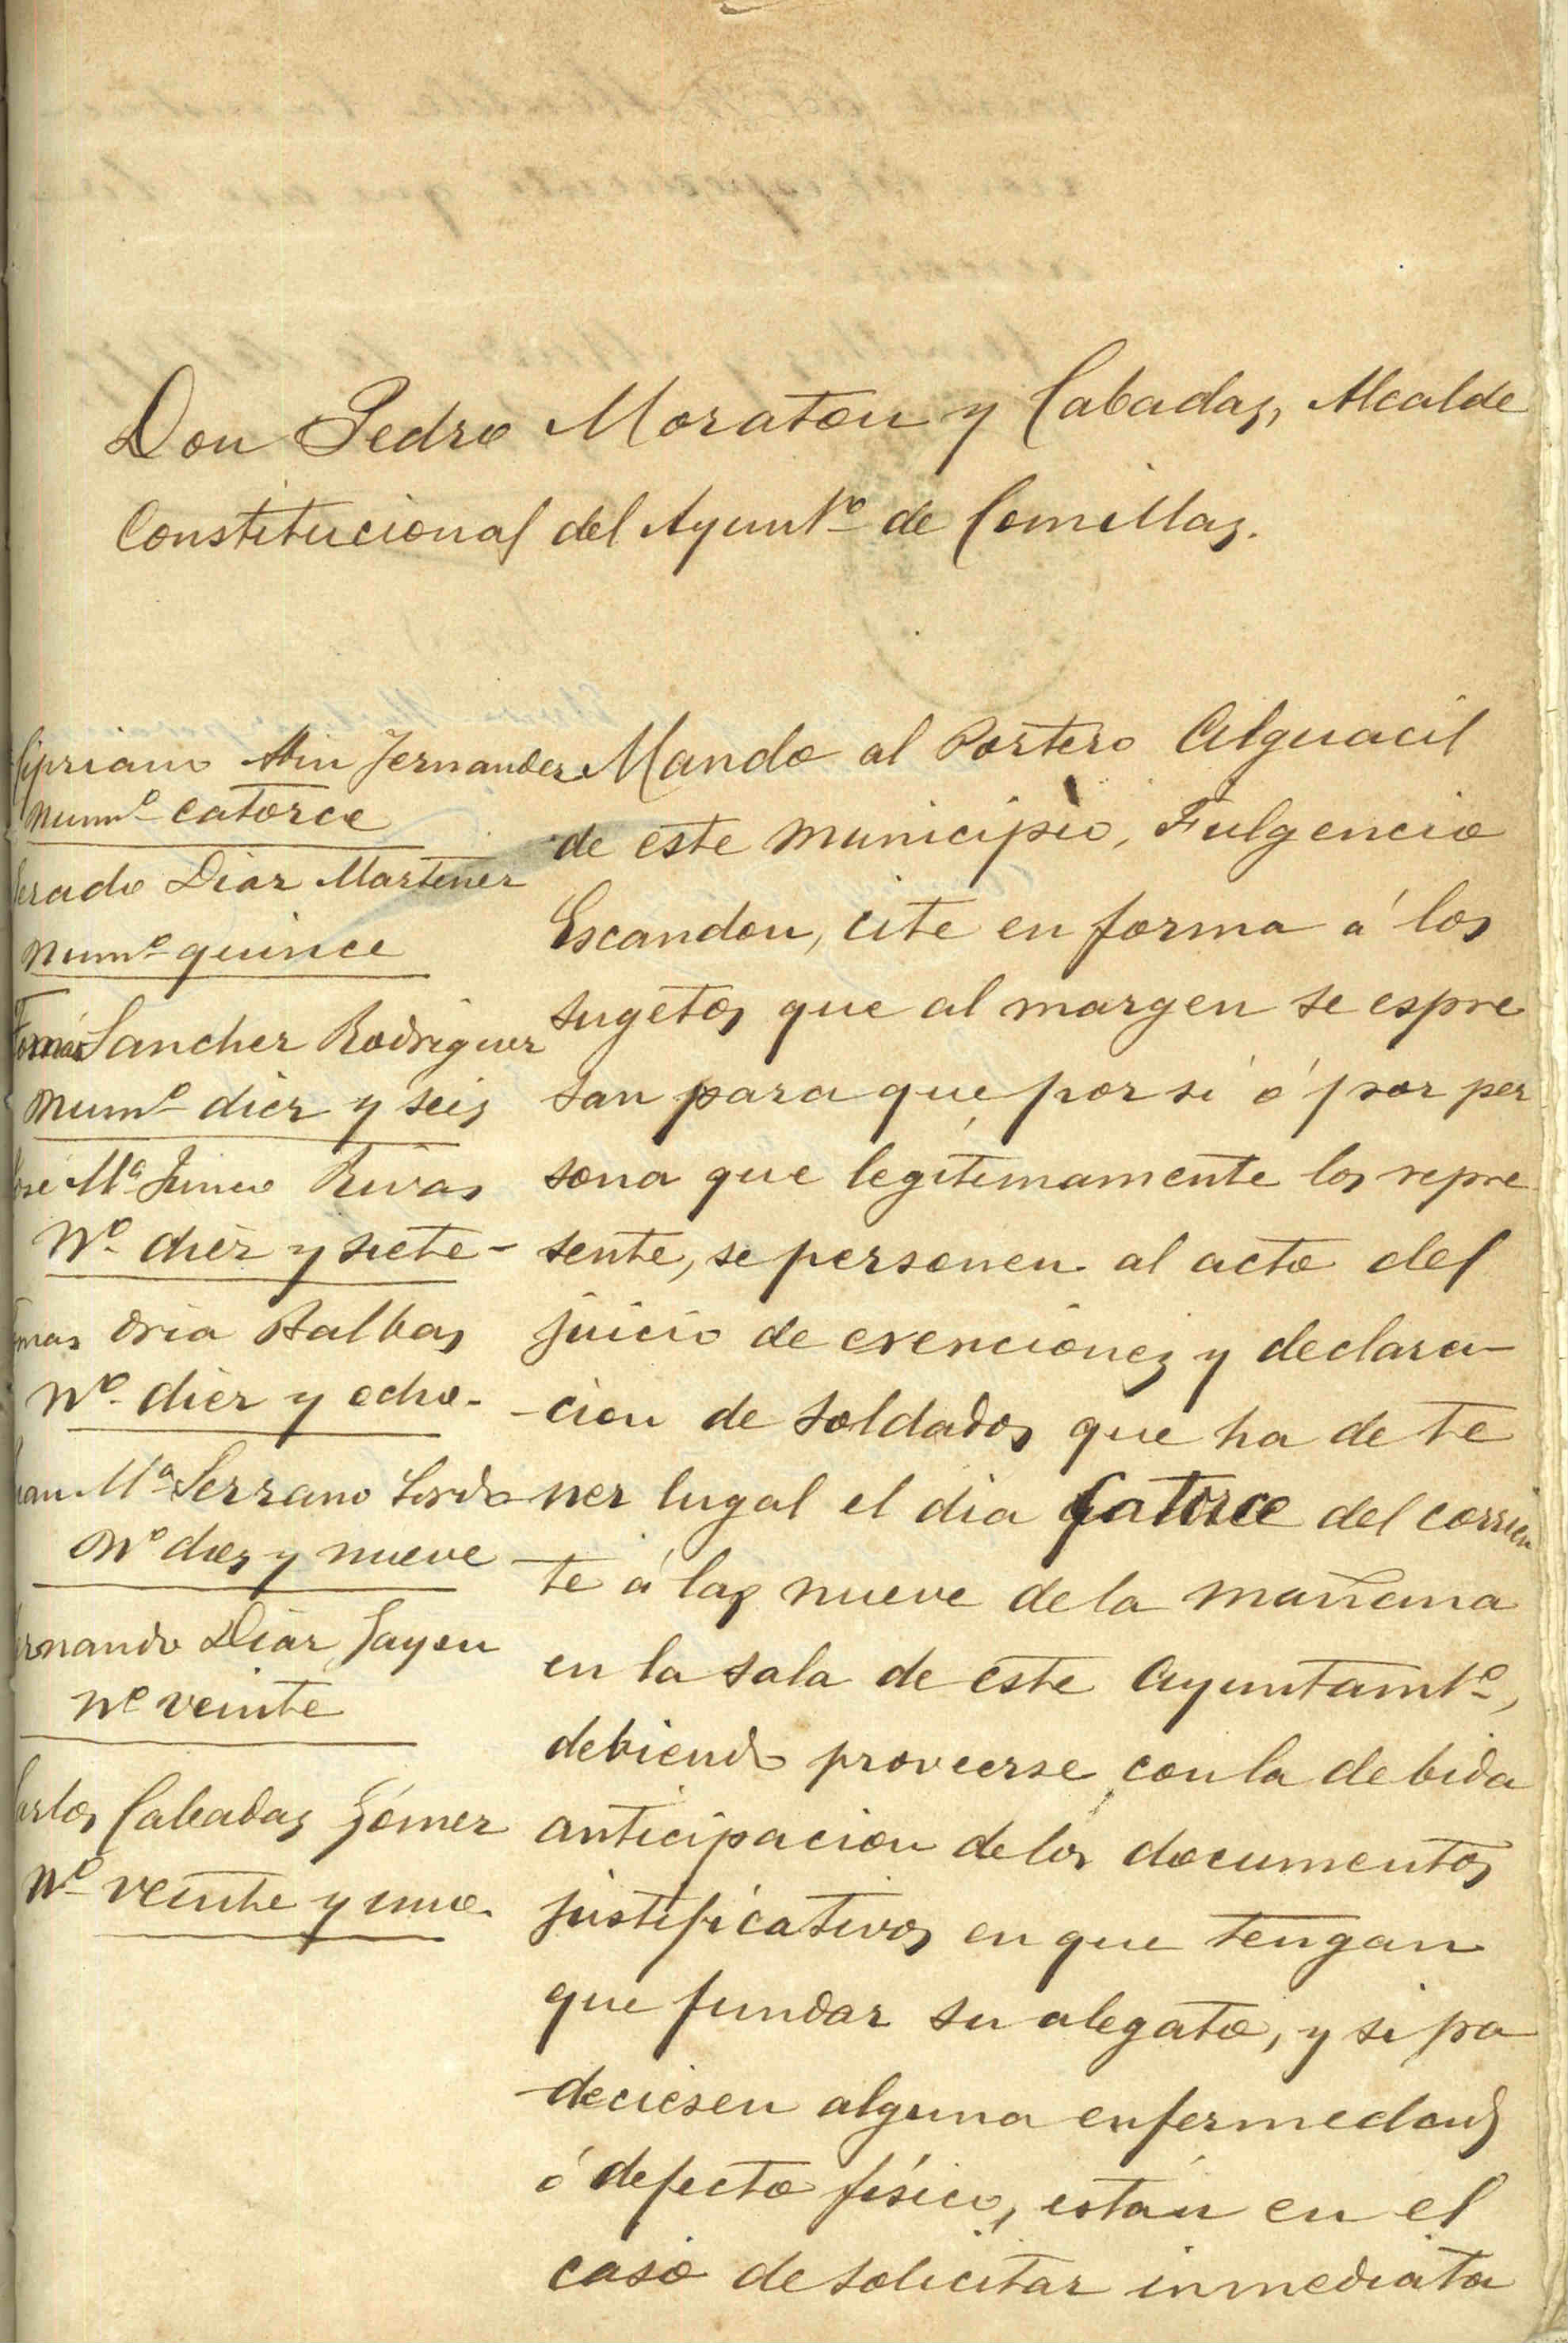 Don Pedro Moraton y Cabadas, Alcalde
Constitucional del Ayunt.º de Comillas.
Cipriano Fernandez
num.º catorce
Diaz Martinez
num.º quince
Tomás Sanchez Rodriguez
num.º diez y seis
José M.ª Rivas
N.º diez y siete-
Oria Balbas
N.º diez y ocho-
Juan M.ª Serrano Sordo
N.º diez y nueve
Fernando Diaz Gayon
N.º veinte
Carlos Cabadas Gómez
N.º veinte y uno.
Mando al Portero Alguacil
de este municipio, Fulgencio
Escandon, cite en forma á los
sugetos que al margen se espre
san para que por si ó por per
sona que legítimamente los repre
sente, se personen al acto del
juicio de exenciones y declara-
-cion de soldados que ha de te
ner lugal el dia catorce del corrien
te á las nueve de la mañana
en la sala de este Ayuntamt.º,
debiendo proveerse con la debida
anticipacion de los documentos
justificativos en que tengan
que fundar su alegato, y si pa
deciesen alguna enfermedad
ó defecto físico, están en el
caso de solicitar inmediata